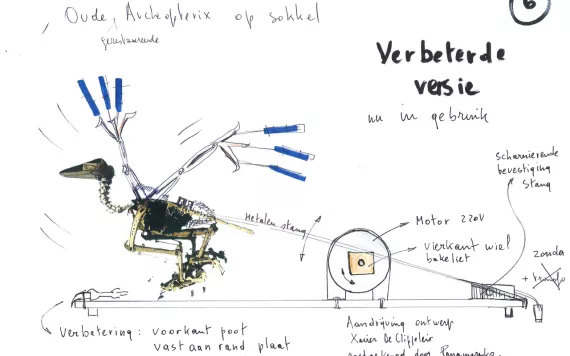 6
Oude, Archeopterix op sokkel
gerestaureerde
Verbeterde
versie
nu in gebruik
scharnierende
bevestiging
stang
Metalen stang
Motor 220V
vierkant wiel
bakeliet
zonder
+
Verbetering : voorkant poot
vast aan rand plaat
Aandrijving ontwerp
Xavier De Clippeleir
door Panamarenko